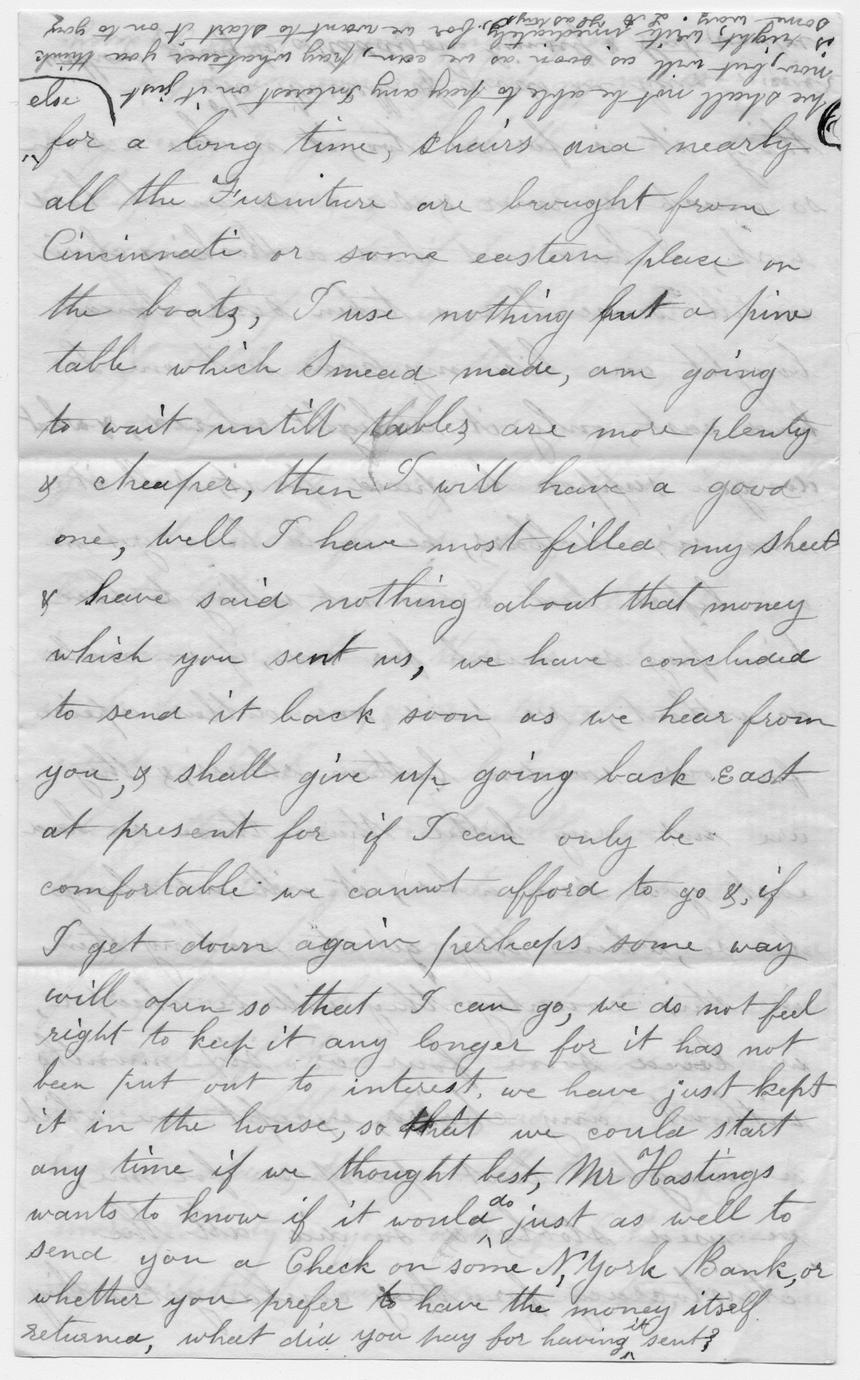 else
for a long time, chairs and nearly
all the Furniture are brought from
Cincinnati or some eastern place on
the boats, I use nothing but a pine
table which Smead made, am going
to wait untill tables are more plenty
& cheaper, then I will have a good
one, well I have most filled my sheet
& have said nothing about that money
which you sent us, we have concluded
to send it back soon as we hear from
you, & shall give up going back East
at present for if I can only be
comfortable we cannot afford to go &, if
I get down again perhaps some way
will open so that I can go, we do not feel
right to keep it any longer for it has not
been put out to interest, we have just kept
it in the house, so that we could start
any time if we thought best, Mr Hastings
wants to know if it would do just as well to
send you a Check on some N, York Bank, or
whether you prefer to have the money itself
returned, what did you pay for having it sent?
We shall not be able to pay any Interest on it just
now, but will as soon as we can, pay whatever you think
is right, write imediately, for we want to start it on to you
some way. L A Hastings